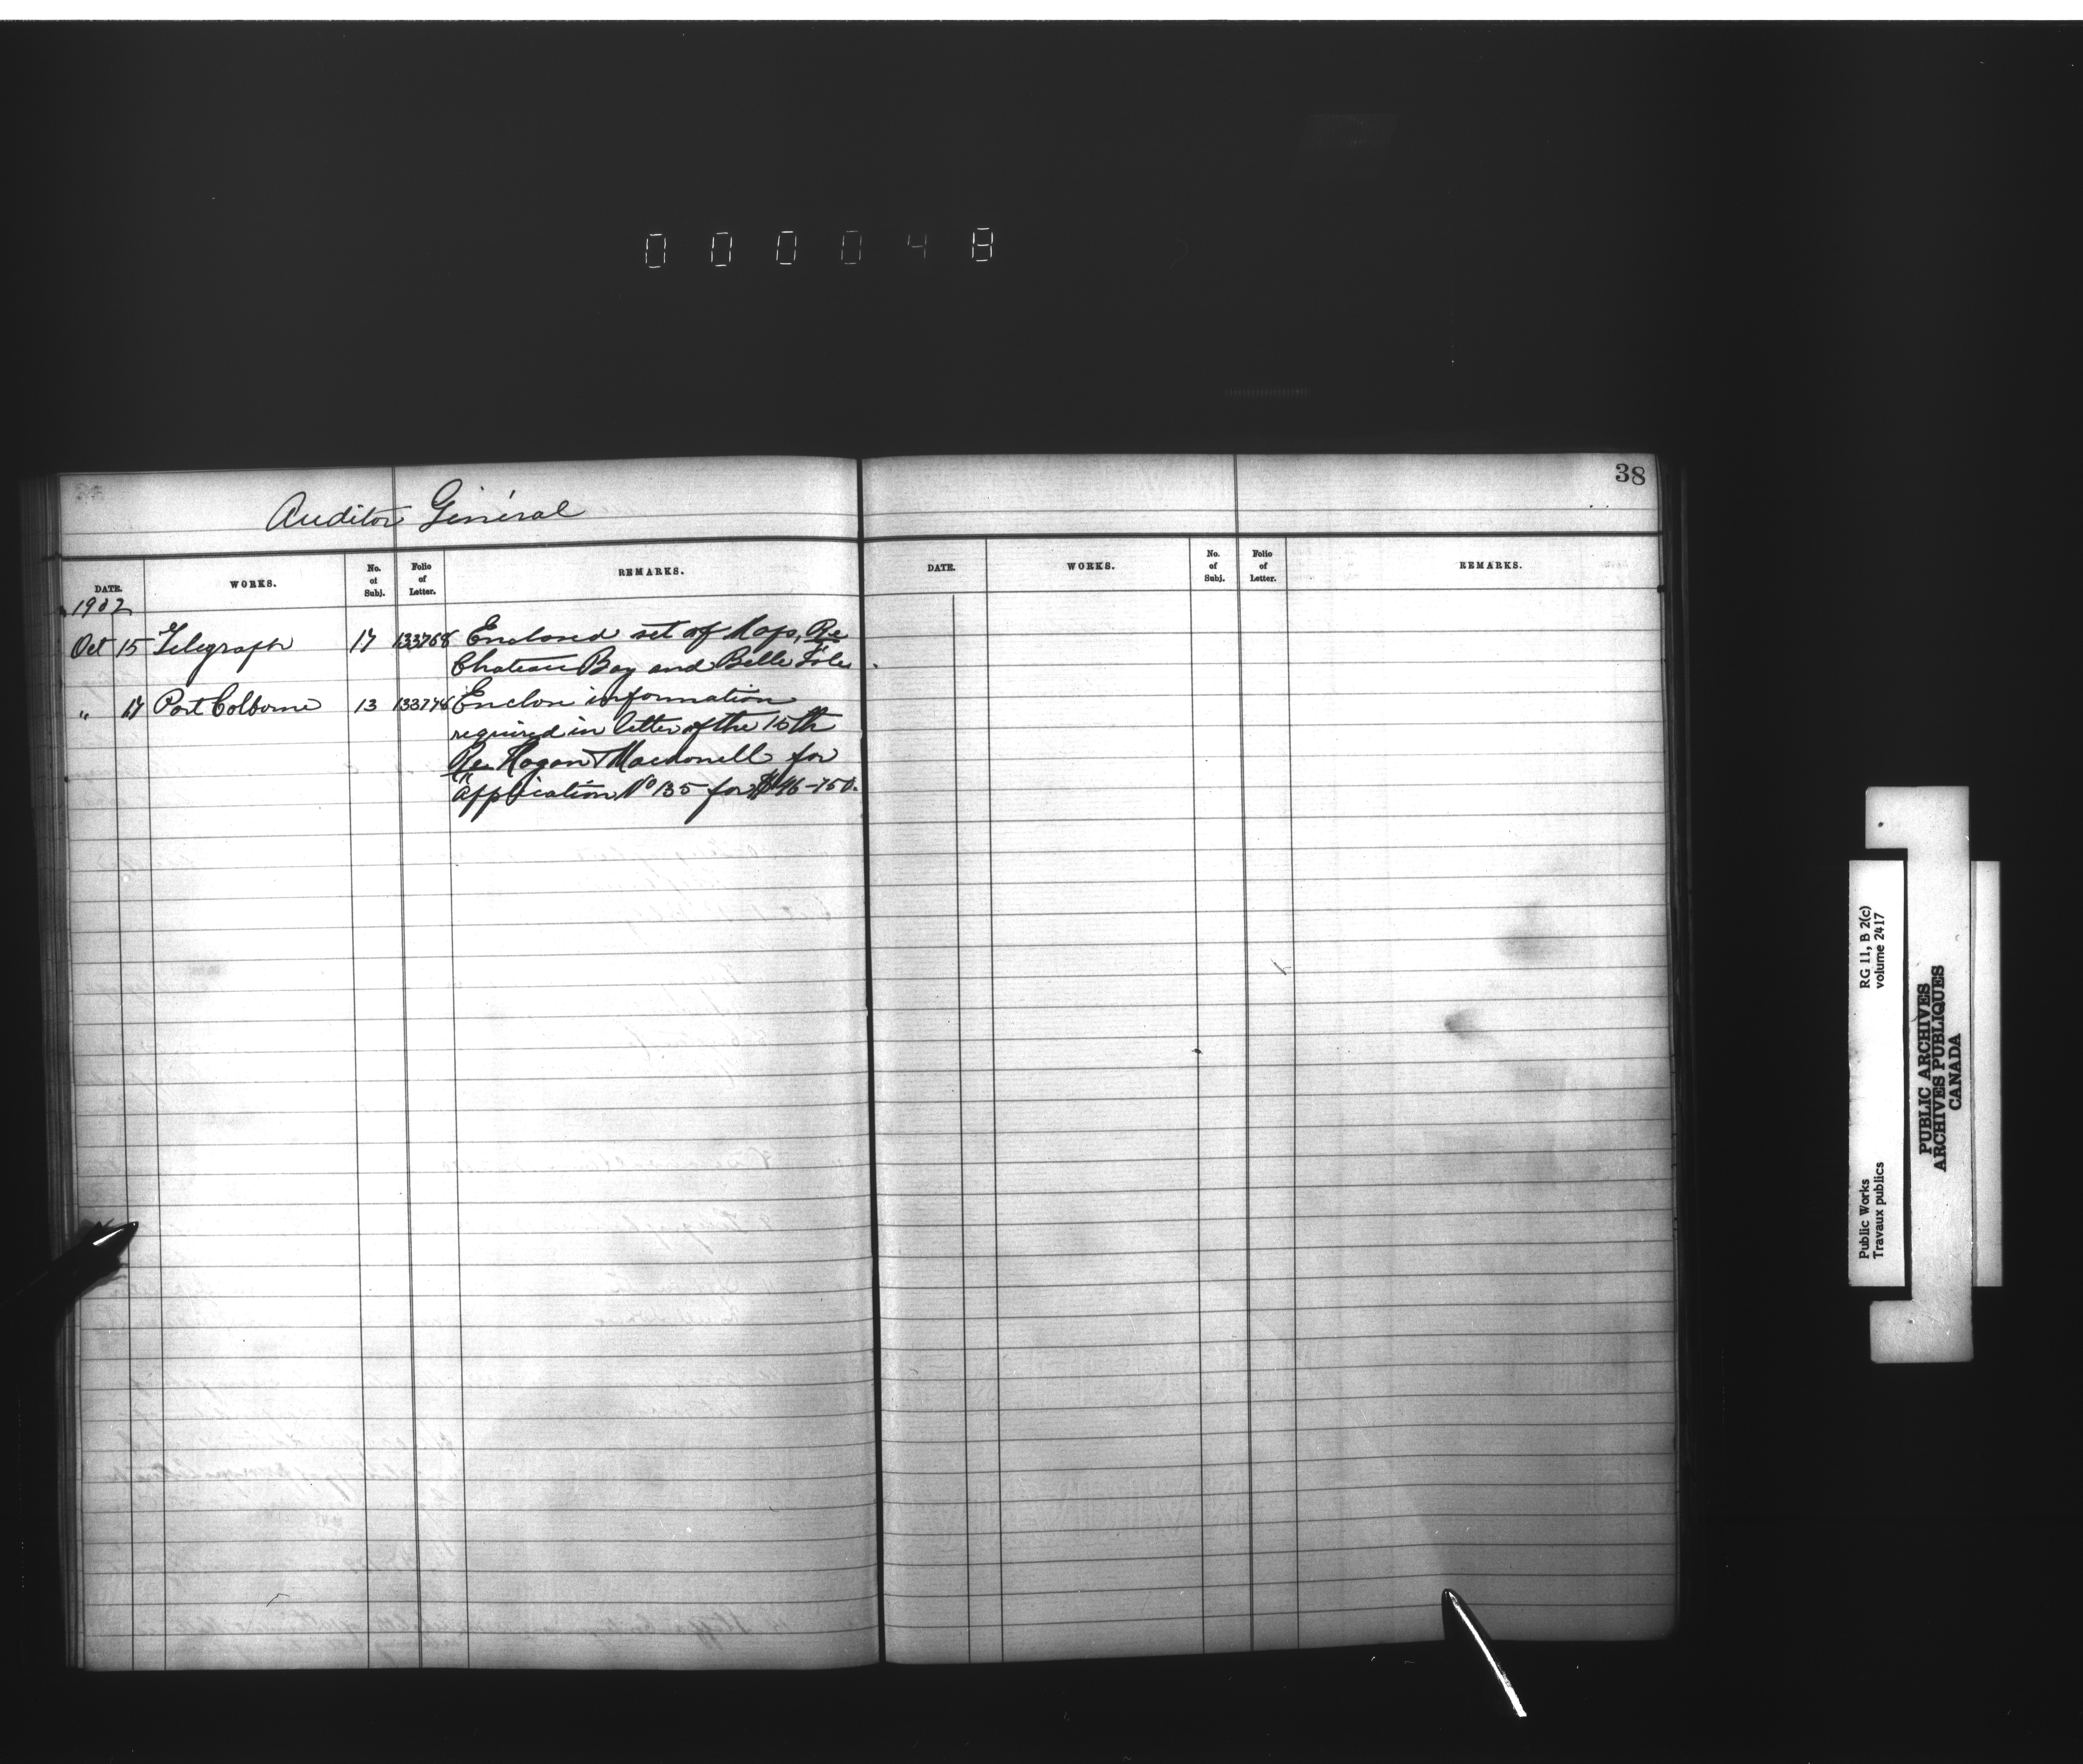 000048
38
Auditor Général
DATE. WORKS. No. of Subj. Folio of Letter. REMARKS.
DATE. WORKS. No. of Subj. Folio of Letter. REMARKS.
1902
Oct 15 Telegraph 17 133768 Enclosed set of Maps, Re
Chateau Bay and Belle Isle
" 17 Port Colborne 13 133774 Enclose information
required in letter of the 15th
Re Hogan & Macdonell for
application No 135 for $46-750.
RG 11, B 2(c)
volume 2417
Public Works
Travaux publics
PUBLIC ARCHIVES
ARCHIVES PUBLIQUES
CANADA